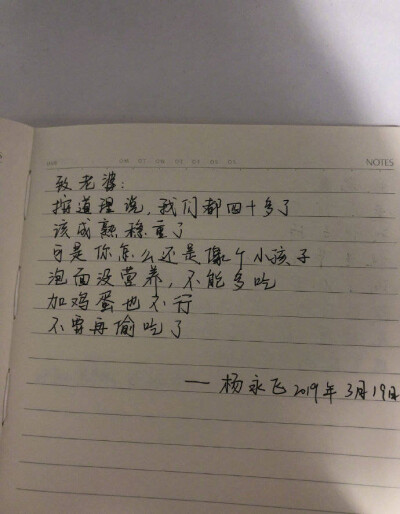 NOTES
致老婆：
按道理说，我们都四十多了
该成熟稳重了
可是你怎么还是像个小孩子
泡面没营养，不能多吃
加鸡蛋也不行
不要再偷吃了
——杨永飞 2019年3月19日